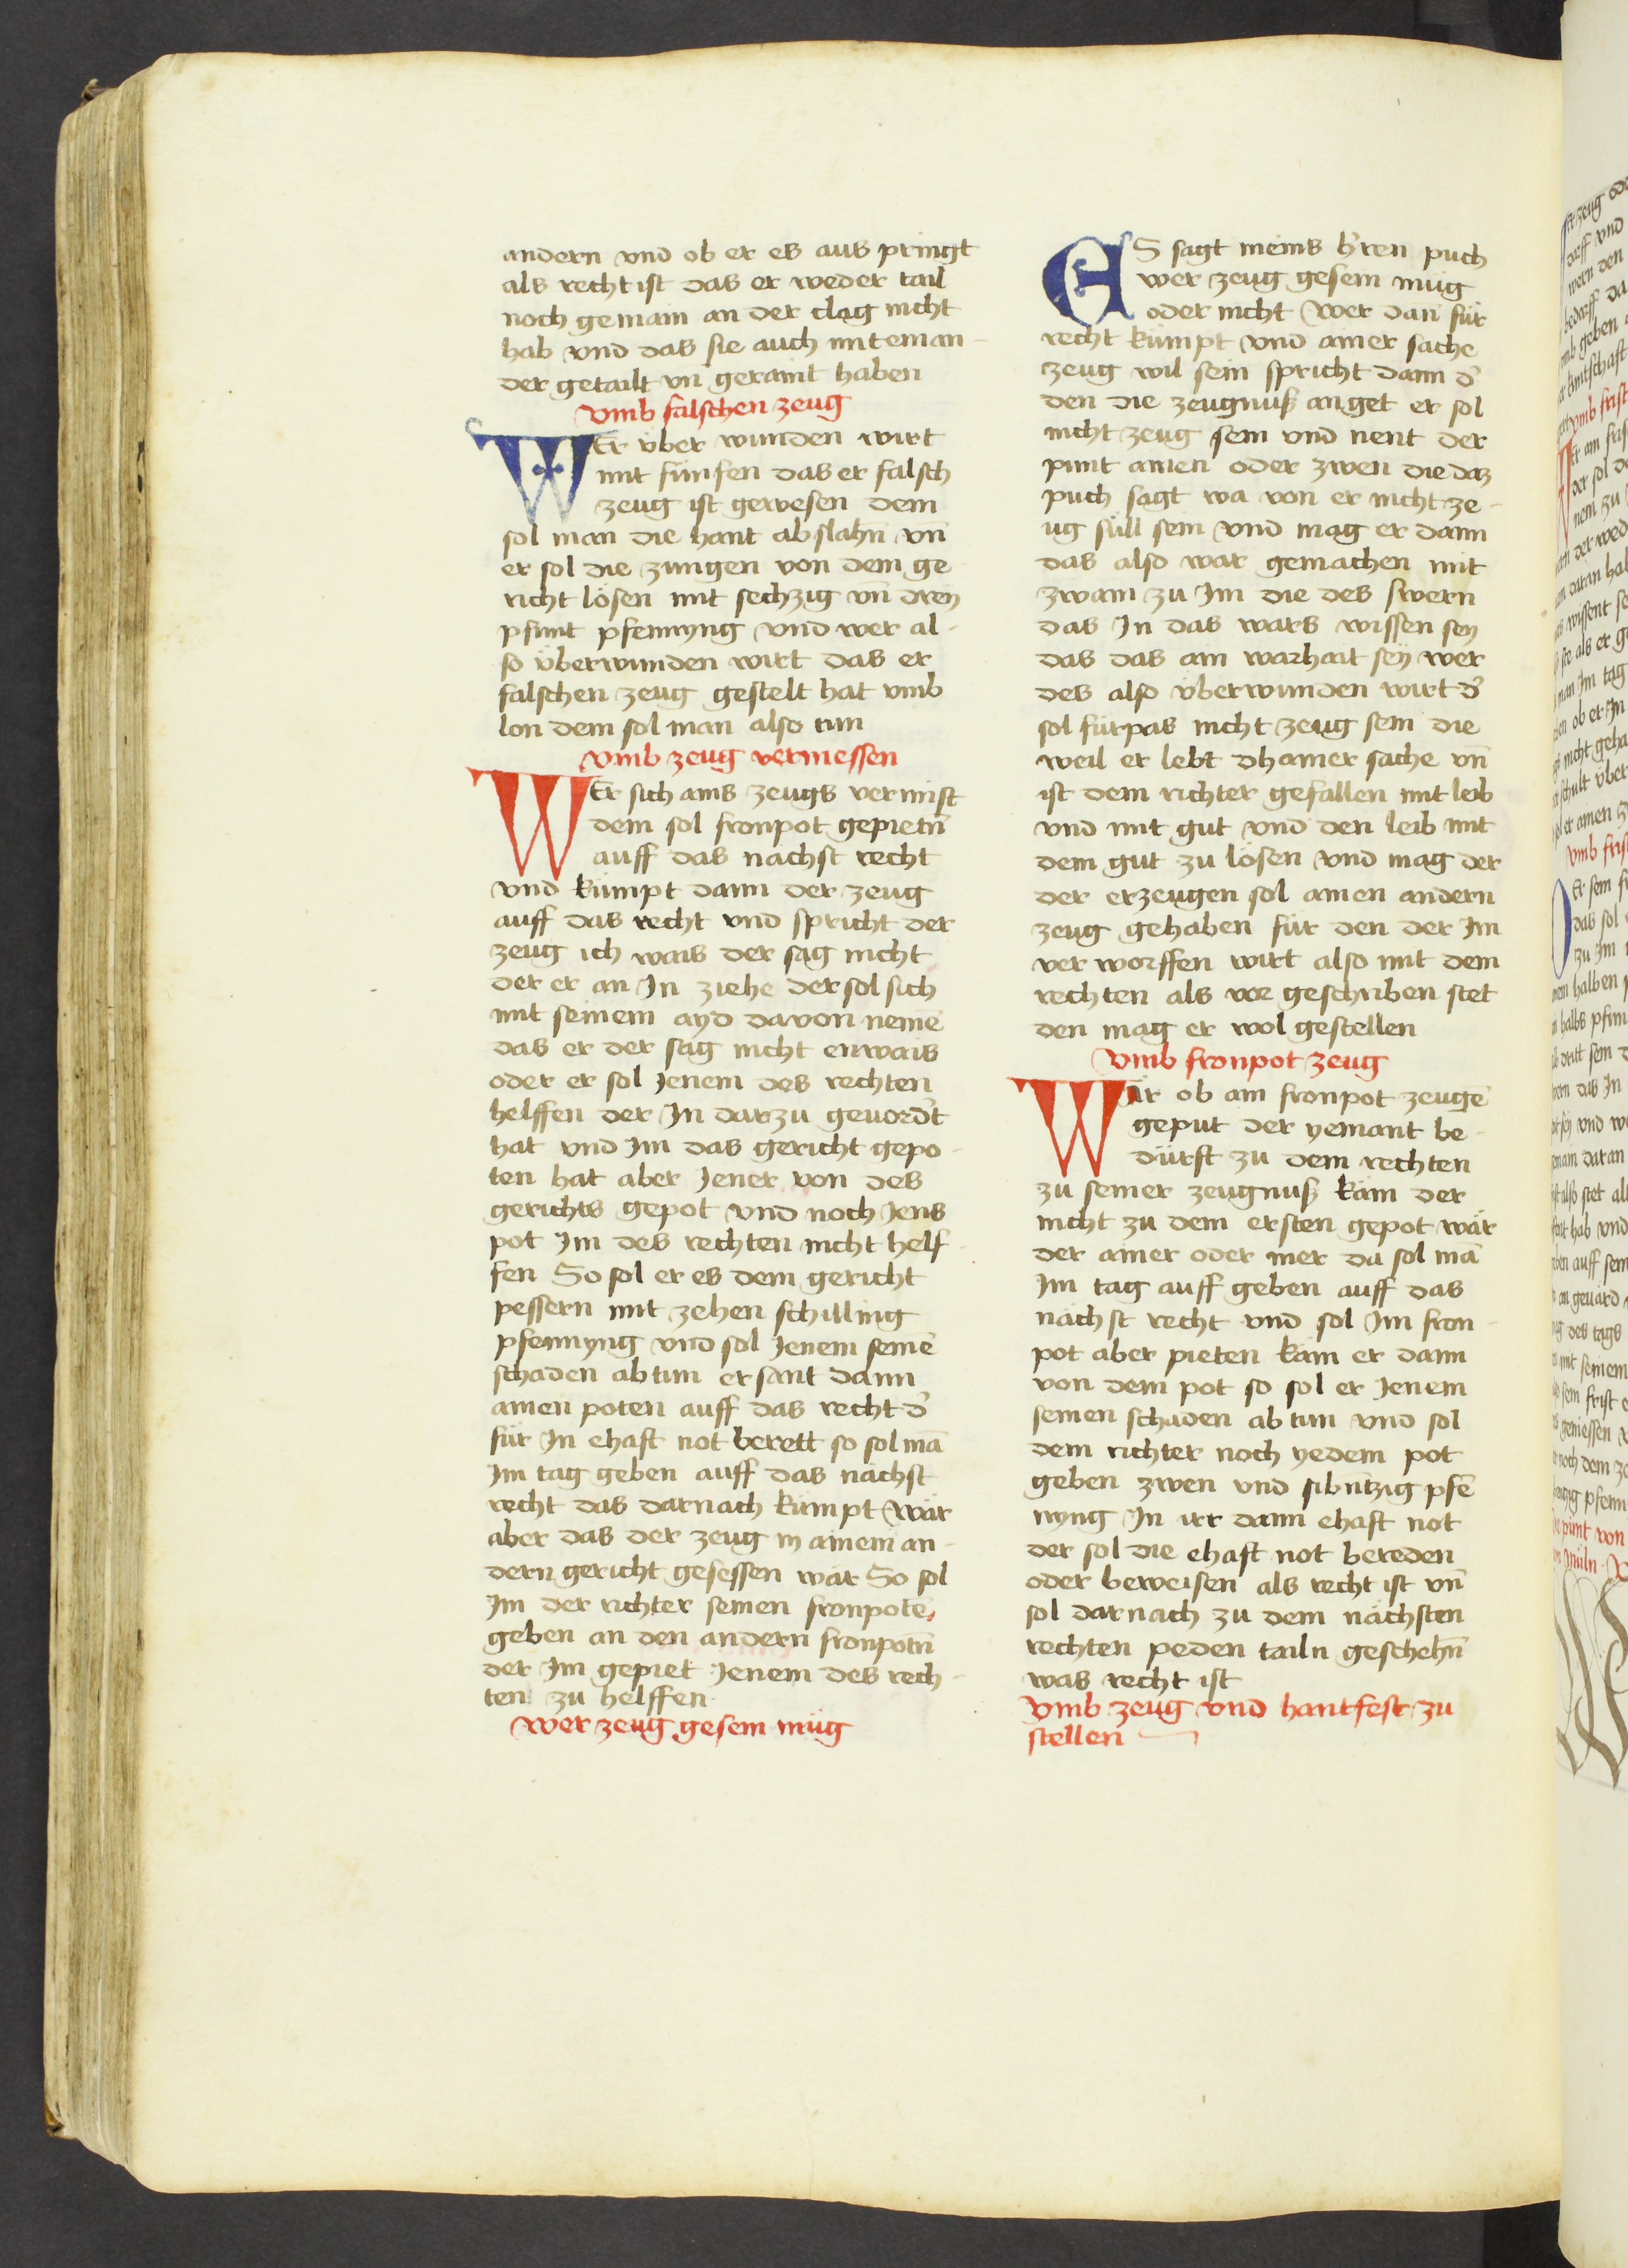 andern vnd ob er es aus pringt
als recht ist das er weder tail
noch gemain an der clag nicht
hab vnd das sie auch mit einan-
der getailt vn̄ geraint haben
vmb falschen zeug
WEr vber wunden wirt
mit fünfen das er falsch
zeug ist gewesen dem
sol man die hant abslahn̄ vn̄
er sol die zungen von dem ge
richt lösen mit sechzig vn̄ dreÿ
pfunt pfennyng vnd wer al-
so überwunden wirt das er
falschen zeug gestelt hat vmb
lon dem sol man also tun
vmb zeug vermessen
WEr sich ains zeugs vermist
dem sol fronpot gepietn̄
auff das nachst recht
vnd kümpt dann der zeug
auff das recht vnd spricht der
zeug ich wais der sag nicht
der er an In ziehe der sol sich
mit seinem ayd davon nemē
das er der sag nicht enwais
oder er sol Jenem des rechten
helffen der In darzu geuordt̄
hat vnd Im das gericht gepo-
ten hat aber Jener von des
gerichts gepot vnd noch Jens
pot Im des rechten nicht helf-
fen So sol er es dem gericht
pessern mit zehen schilling
pfennyng vnd sol Jenem seinē
schaden abtun er sant dann
ainen poten auff das recht d̄
für In ehaft not berett so sol mā
Im tag geben auff das nächst
recht das darnach kümpt wär
aber das der zeug in ainem an-
dern gericht gesessen wär So sol
Im der richter seinen fronpotē
geben an den andern fronpotn̄
der Im gepiet Jenem des rech-
ten zu helffen
wer zeug gesein müg
ES sagt meins h̄ren puch
wer zeug gesein müg
oder nicht wer dan für
recht kümpt vnd ainer sache
zeug wil sein spricht dann d̄
den die zeugnuß anget er sol
nicht zeug sein vnd nent der
punt ainen oder zwen die daz
puch sagt wa von er nicht ze-
ug süll sein vnd mag er dann
das also war gemachen mit
zwain zu Im die des swern
das In das wars wissen seÿ
das das ain warhait seÿ wer
des also überwunden wirt d̄
sol fürpas nicht zeug sein die
weil er lebt dhainer sache vn̄
ist dem richter gefallen mit leib
vnd mit gut vnd den leib mit
dem gut zu lösen vnd mag der
der erzeugen sol ainen andern
zeug gehaben für den der Im
ver worffen wirt also mit dem
rechten als vor geschriben stet
den mag er wol gestellen
vmb fronpot zeug
Wär ob ain fronpot zeugē
geput der yemant be-
dürft zu dem rechten
zu seiner zeugnuß käm der
nicht zu dem ersten gepot wär
der ainer oder mer da sol mā
Im tag auff geben auff das
nächst recht vnd sol Im fron-
pot aber pieten käm er dann
von dem pot so sol er Jenem
seinen schaden ab tun vnd sol
dem richter noch yedem pot
geben zwen vnd sibn̄tzig pfē
nyng In irr dann ehaft not
der sol die ehaft not bereden
oder beweisen als recht ist vn̄
sol darnach zu dem nächsten
rechten peden tailn geschehn̄
was recht ist
vmb zeug vnd hantfest zu
stellen